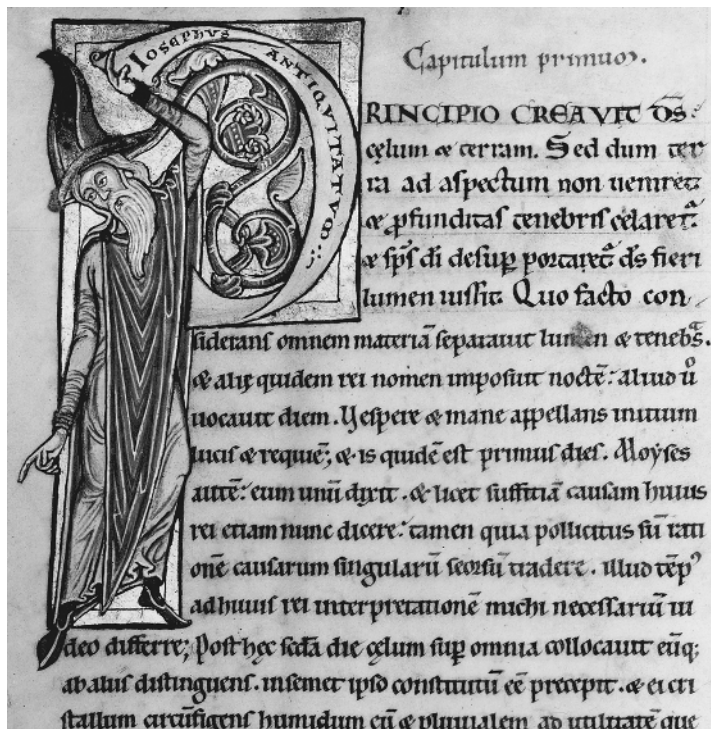 IOSEPHUS ANTIQVITATVM
Capitulum primum.
PRINCIPIO CREAVIT DS̄
cęlum & terram. Sed dum ter
ra ad aspectum non ueniret
& ꝓfunditas tenebris celaret᷑.
& sp̄s di desup portaret᷑ ds̄ fieri
lumen iussit. Quo facto con
siderans omnem materiā separauit lumen & tenebs.
& alię quidem rei nomen imposuit noctē. aliud ū
uocauit diem. Vespere & mane appellans initium
lucis & requiē; & is quidē est primus dies. Moyses
autē eum unū dixit. & licet suffitiā causam huius
rei etiam nunc dicere. tamen quia pollicitus sū rati
onē causarum singularū seorsū tradere. illud tēpꝰ
ad huius rei interpretationē michi necessariū ui
deo differre; Post hęc scda die cęlum sup omnia collocauit eūq;
ab aliis distinguens. in semet ipso constitutū eē precepit. & ei cri
stallum circūfigens humidum eū & pluuialem ad utilitatē que